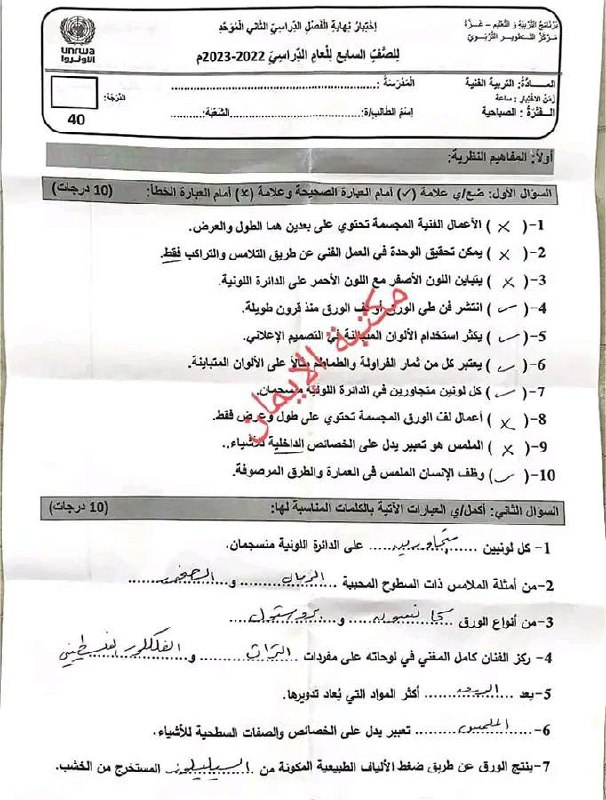 بَرنامَج التَربية و التَعليم – غـــزة
مركز التـطوير التربوي
إختبار نهاية الفَصل الدِراسيّ الثاني المُوَحَد
للصَّف السابع لِلْعام الدِّراسِيّ 2022-2023م
unrwa
الأونروا
المــادَّة: التربية الفنية
المَدْرَسَة: ........................
الدَّرَجَة:
زَمَنُ الاِخْتِبار : ساعة
الفَتْرَة : الصباحية
إسْمُ الطالب/ة: ........................ الشُّعْبَة: ............
40
أولاً: المفاهيم النظرية:
السؤال الأول: ضع/ي علامة (✓) أمام العبارة الصحيحة وعلامة (x) أمام العبارة الخطأ: (10 درجات)
1- ( x ) الأعمال الفنية المجسمة تحتوي على بعدين هما الطول والعرض.
2- ( x ) يمكن تحقيق الوحدة في العمل الفني عن طريق التلامس والتراكب فقط.
3- ( x ) يتباين اللون الأصفر مع اللون الأحمر على الدائرة اللونية.
4- ( ✓ ) انتشر فن طي الورق أو لف الورق منذ قرون طويلة.
5- ( ✓ ) يكثر استخدام الألوان المتباينة في التصميم الإعلاني.
6- ( ✓ ) يعتبر كل من ثمار الفراولة والطماطم مثالاً على الألوان المتباينة.
7- ( ✓ ) كل لونين متجاورين في الدائرة اللونية منسجمان.
8- ( x ) أعمال لف الورق المجسمة تحتوي على طول وعرض فقط.
9- ( x ) الملمس هو تعبير يدل على الخصائص الداخلية للأشياء..
10- ( ✓ ) وظف الإنسان الملمس في العمارة والطرق المرصوفة.
مكتبة الايمان
السؤال الثاني: أكمل/ي العبارات الآتية بالكلمات المناسبة لها: (10 درجات)
1- كل لونين ...متجاورين... على الدائرة اللونية منسجمان.
2-من أمثلة الملامس ذات السطوح المحببة ...الرمال... و...
3-من أنواع الورق ... و...بروستول...
4- ركز الفنان كامل المغني في لوحاته على مفردات ...التراث... و...الفلكلور فلسطيني
5-يعد ... أكثر المواد التي يُعاد تدويرها.
6- ...الملمس... تعبير يدل على الخصائص والصفات السطحية للأشياء.
7-ينتج الورق عن طريق ضغط الألياف الطبيعية المكونة من ...السيليلوز... المستخرج من الخشب.